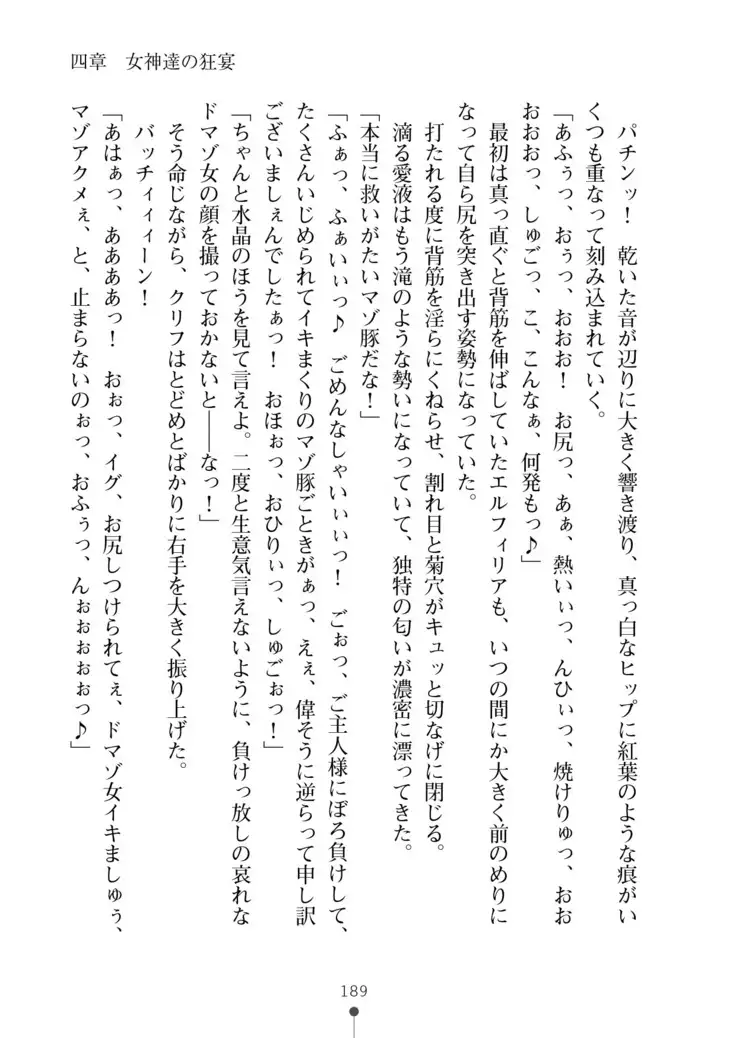 四章　女神達の狂宴
　パチンッ！　乾いた音が辺りに大きく響き渡り、真っ白なヒップに紅葉のような痕がい
くつも重なって刻み込まれていく。
「あふぅっ、おぅっ、おおお！　お尻っ、あぁ、熱いぃっ、んひぃっ、焼けりゅっ、おお
おおおっ、しゅごっ、こ、こんなぁ、何発もっ♪」
　最初は真っ直ぐと背筋を伸ばしていたエルフィリアも、いつの間にか大きく前のめりに
なって自ら尻を突き出す姿勢になっていた。
　打たれる度に背筋を淫らにくねらせ、割れ目と菊穴がキュッと切なげに閉じる。
　滴る愛液はもう滝のような勢いになっていて、独特の匂いが濃密に漂ってきた。
「本当に救いがたいマゾ豚だな！」
「ふぁっ、ふぁいぃっ♪　ごめんなしゃいぃぃっ！　ごぉっ、ご主人様にぼろ負けして、
たくさんいじめられてイキまくりのマゾ豚ごときがぁっ、えぇ、偉そうに逆らって申し訳
ございましぇんでしたぁっ！　おほぉっ、おひりぃっ、しゅごぉっ！」
「ちゃんと水晶のほうを見て言えよ。二度と生意気言えないように、負けっ放しの哀れな
ドマゾ女の顔を撮っておかないと――なっ！」
　そう命じながら、クリフはとどめとばかりに右手を大きく振り上げた。
　バッチィィィーン！
「あはぁっ、ああああっ！　おぉっ、イグ、お尻しつけられてぇ、ドマゾ女イキましゅぅ、
マゾアクメぇ、と、止まらないのぉっ、おふぅっ、んぉぉぉぉぉっ♪」
189